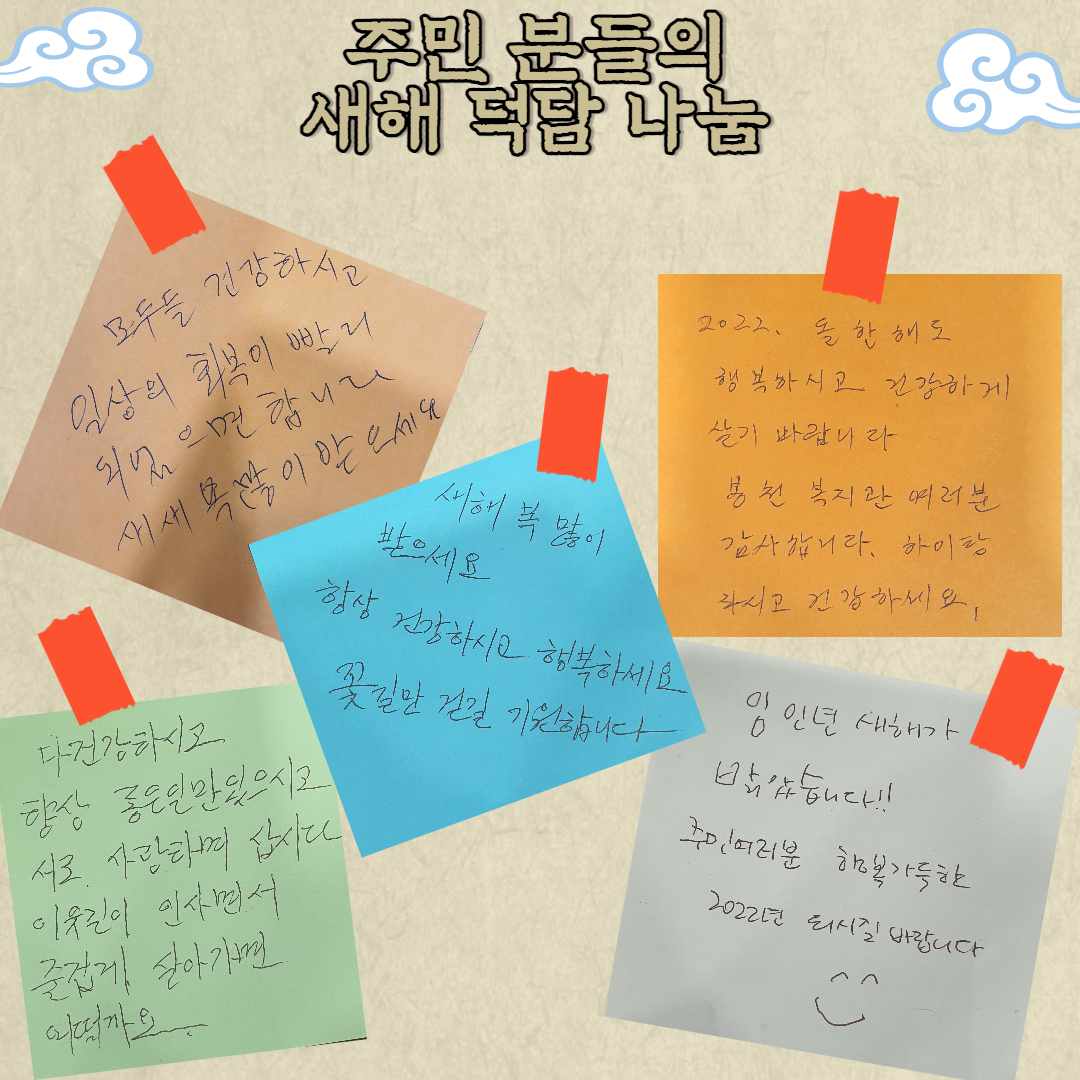 주민 분들의
새해 덕담 나눔
모두들 건강하시고
일상의 회복이 빨리
되었으면 합니다
새새 복많이 받으세요
2022. 올 한해도
행복하시고 건강하게
살기 바랍니다
봉천 복지관 여러분
감사합니다. 하이팅
하시고 건강하세요,
새해 복 많이
받으세요
항상 건강하시고 행복하세요
꽃길만 걷길 기원합니다
다건강하시고
항상 좋은일만있으시고
서로. 사랑하며 삽시다
이웃끼리 인사면서
즐겁게 살아가면
어떨까요
임인년 새해가
밝았습니다!!
주민여러분 행복가득한
2022년 되시길 바랍니다